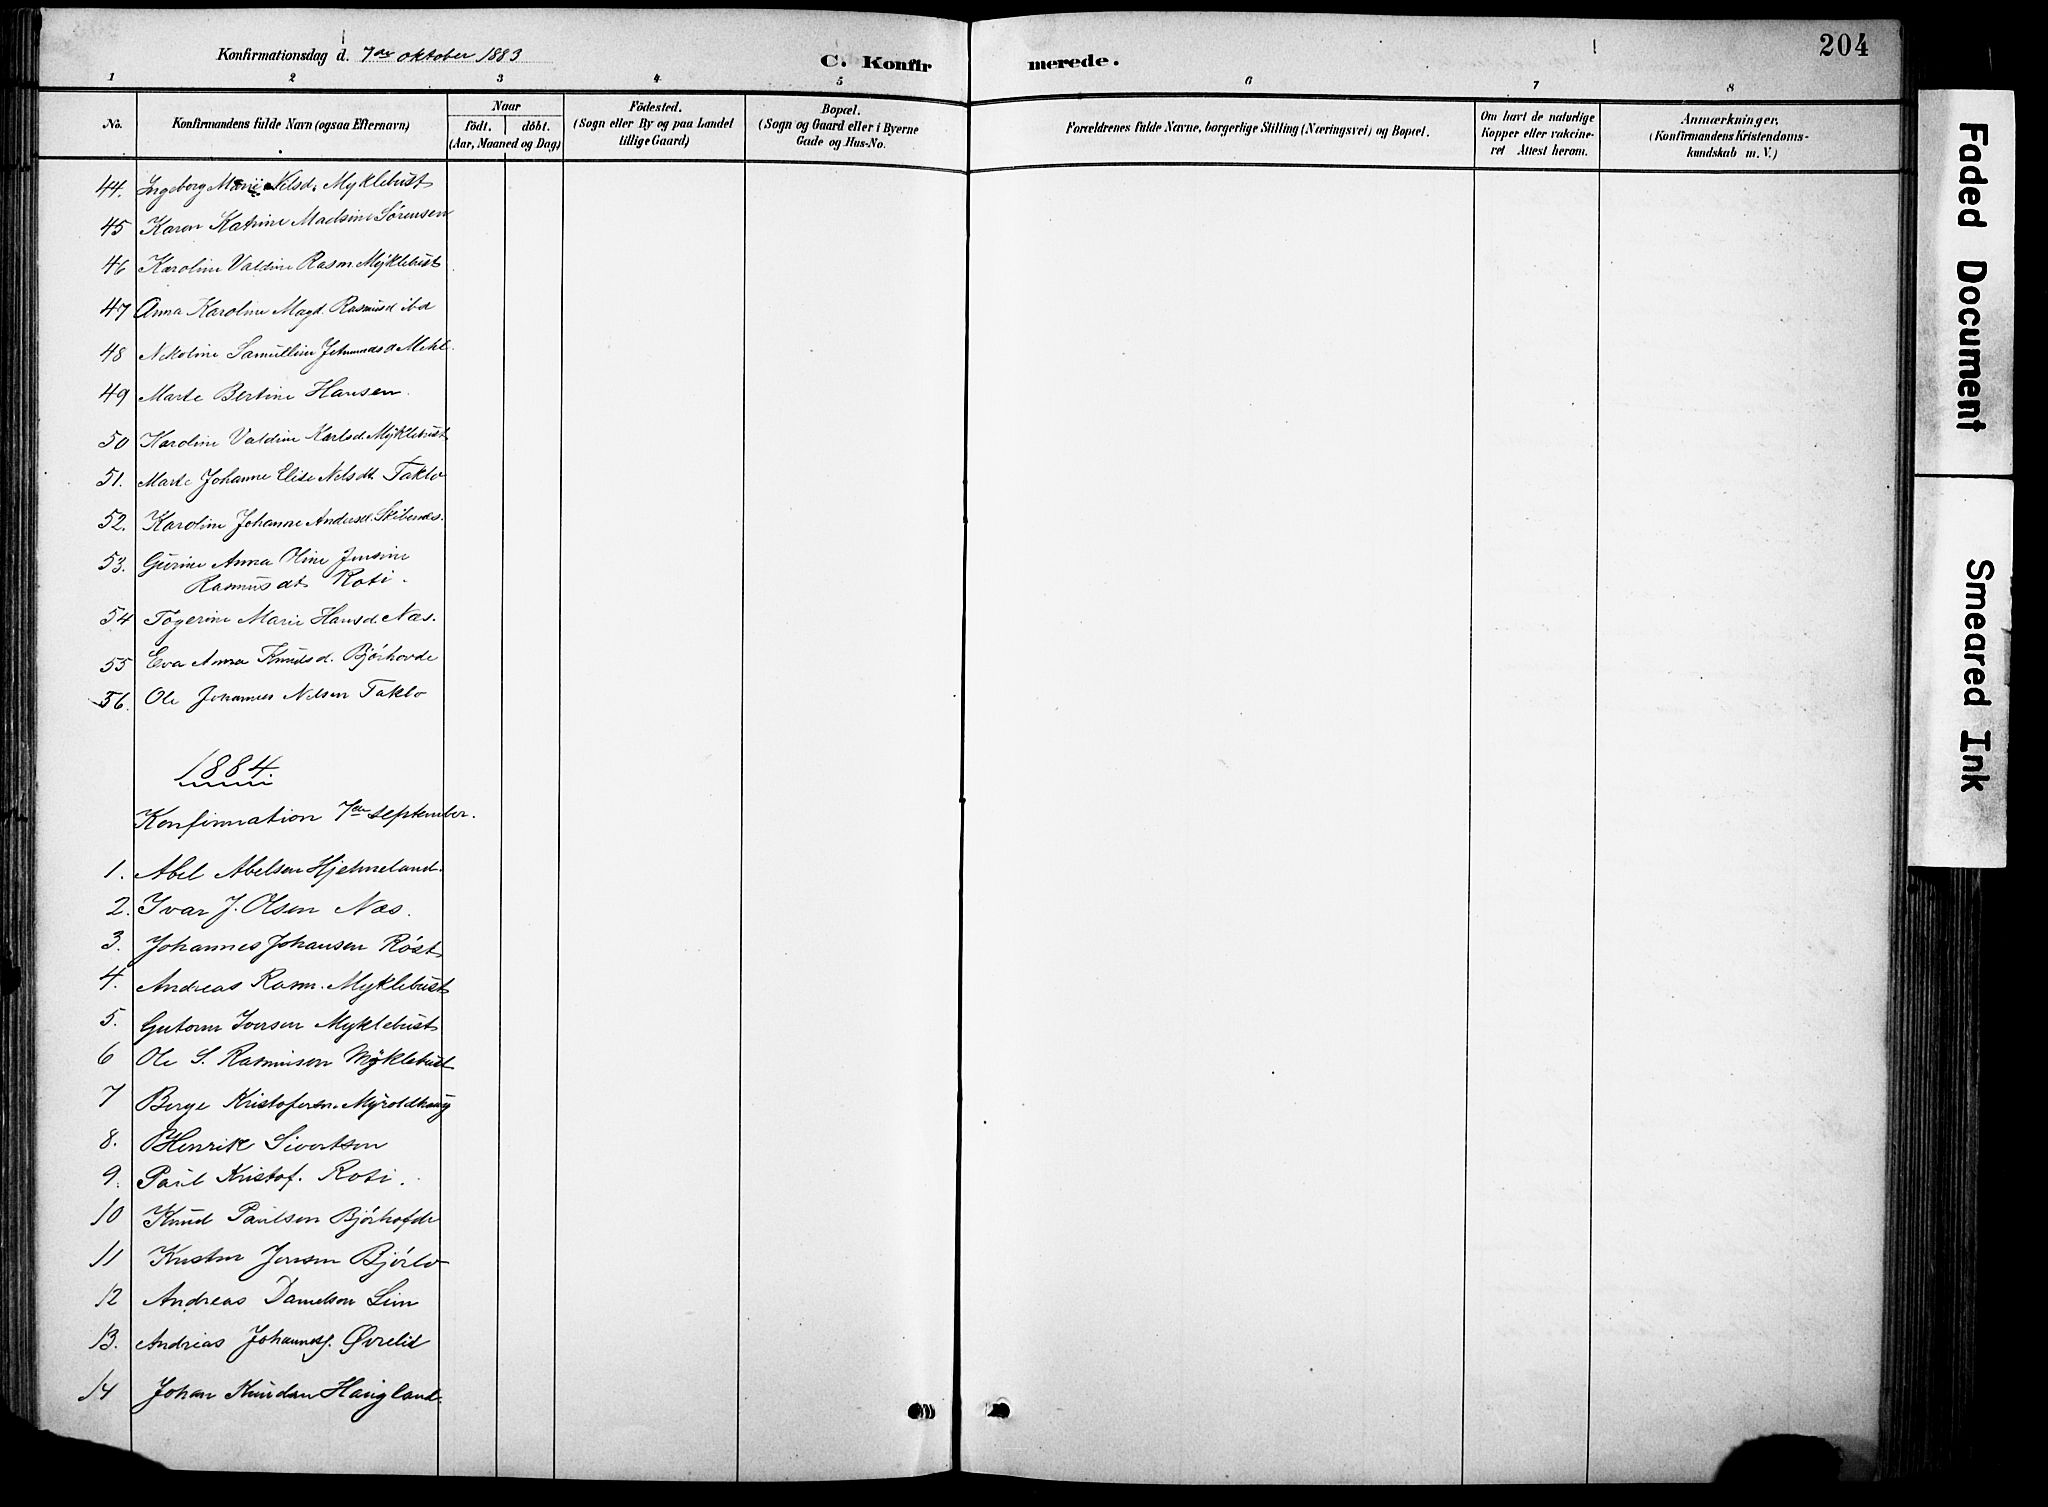 204
Konfirmationsdag d. 7de oktober 1883
C. Konfirmerede.
1 2 3 4 5 6 7 8
No.
Konfirmandens fulde Navn (ogsaa Efternavn)
Naar
födt. döbt.
(Aar, Maaned og Dag)
Födested.
(Sogn eller By og paa Landet
tillige Gaard)
Bopæl.
(Sogn og Gaard eller i Byerne
Gade og Hus-No.
Forældrenes fulde Navne, borgerlige Stilling (Næringsvei) og Bopæl.
Om havt de naturlige
Kopper eller vakcine-
ret Attest herom.
Anmærkninger.
(Konfirmandens Kristendoms-
kundskab m. V.)
44. Ingeborg Marie Nilsd. Myklebust
45 Karen Katrine Madsine Sørensen
46 Karoline Valdine Rasm. Myklebust
47 Anna Karoline Magd. Rasmusd ibd
48 Nikoline Samueline
49 Marte Bertine Hansen.
50 Karoline Valdine Karlsd. Myklebust
51. Marte Johanne Elise Nelsdt Taklo
52. Karoline Johanne Andersd. Skibenes.
53. Gurine Anna Oline Jensine
Rasmusdt Roti.
54 Togerine Marie Hansd. Næs.
55 Eva Anna Knudsd. Bjørhovde
56. Ole Johannes Nelsen Taklo
1884.
Konfirmation 7de september.
1. Abel Abelsen Hjelmeland.
2. Ivar J. Olsen Næs.
3. Johannes Johansen Røst
4. Andreas Rasm. Myklebust
5. Gutorm Iversen Myklebust
6 Ole S. Rasmussen Myklebust
7 Berge Kristofersn. Myroldhaug
8. Henrik Sivertsen
9. Paul Kristof. Roti.
10 Knud Paulsen Bjørhofde
11 Kristen Jensen Bjørlo
12 Andreas Danielsen Lim
13. Andreas Johannes. Øvrelid
14 Johan Knudsen Haugland.
Faded Document
Smeared Ink